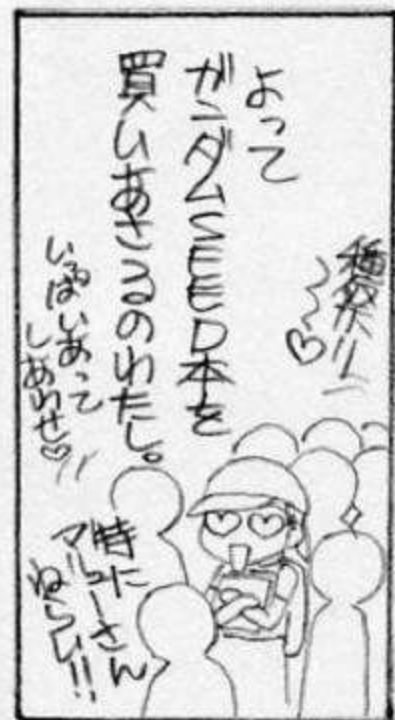 種祭り～～♡
よって
ガンダムSEED本を
買いあさるのわたし。
いっぱいあって
しあわせ♡
特に
マリューさん
ねらい!!